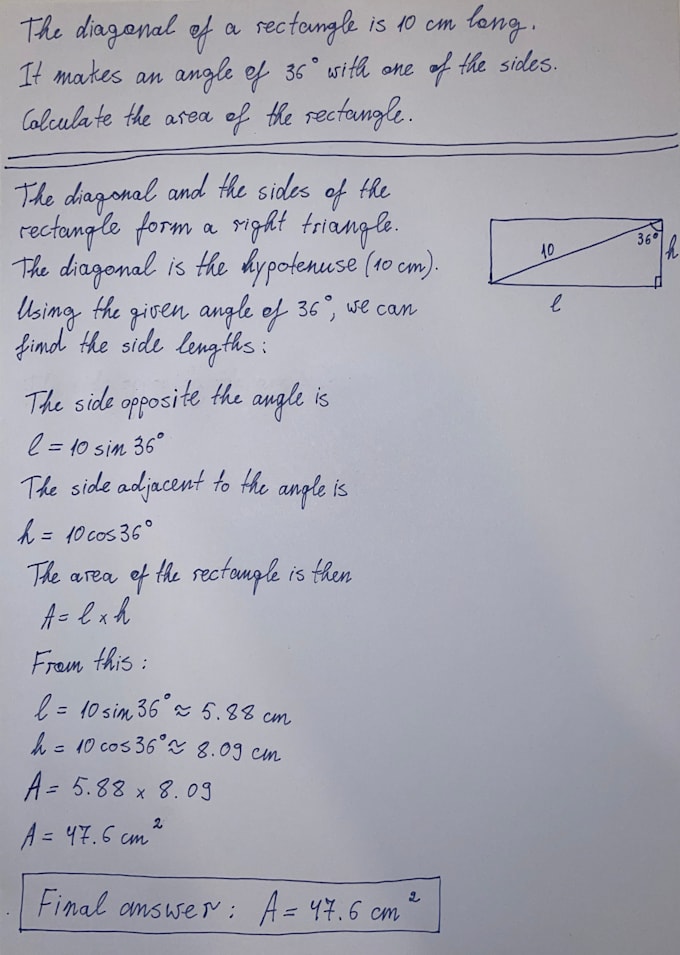 The diagonal of a rectangle is 10 cm long.
It makes an angle of 36° with one of the sides.
Calculate the area of the rectangle.
The diagonal and the sides of the
rectangle form a right triangle.
The diagonal is the hypotenuse (10 cm).
Using the given angle of 36°, we can
find the side lengths:
10
36°
h
l
The side opposite the angle is
l = 10 sin 36°
The side adjacent to the angle is
h = 10 cos 36°
The area of the rectangle is then
A = l × h
From this:
l = 10 sin 36° ≈ 5.88 cm
h = 10 cos 36° ≈ 8.09 cm
A = 5.88 × 8.09
A = 47.6 cm²
Final answer: A = 47.6 cm²